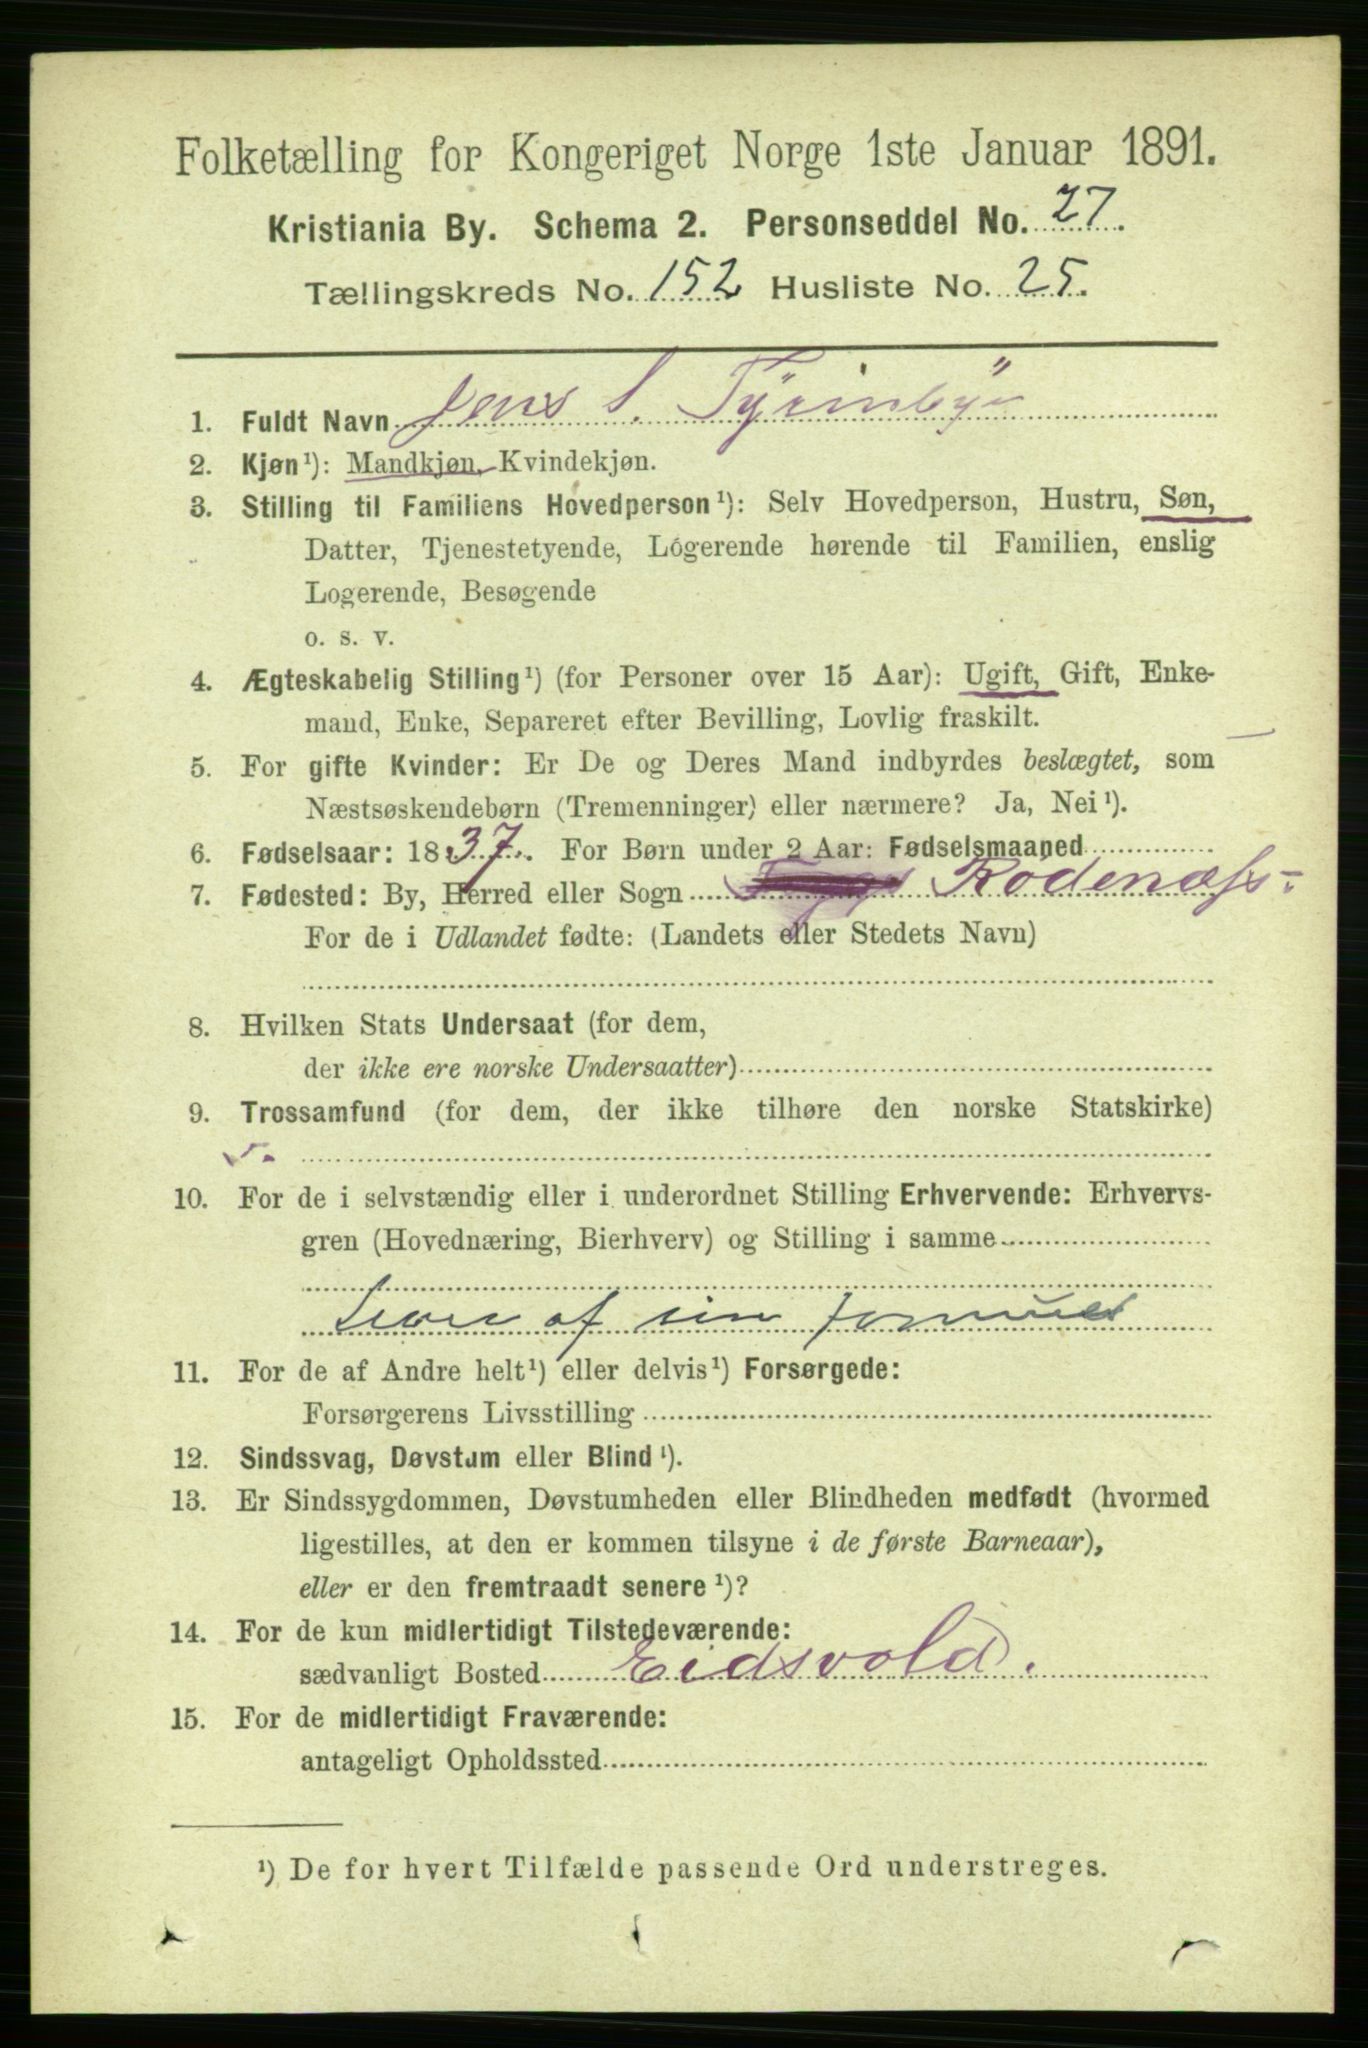 Folketælling for Kongeriget Norge 1ste Januar 1891.
Kristiania By. Schema 2. Personseddel No. 27.
Tællingskreds No. 152 Husliste No. 25.
1. Fuldt Navn Jens S.
2. Kjøn¹): Mandkjøn, Kvindekjøn.
3. Stilling til Familiens Hovedperson¹): Selv Hovedperson, Hustru, Søn,
Datter, Tjenestetyende, Logerende hørende til Familien, enslig
Logerende, Besøgende
o. s. v.
4. Ægteskabelig Stilling¹) (for Personer over 15 Aar): Ugift, Gift, Enke-
mand, Enke, Separeret efter Bevilling, Lovlig fraskilt.
5. For gifte Kvinder: Er De og Deres Mand indbyrdes beslægtet, som
Næstsøskendebørn (Tremenninger) eller nærmere? Ja, Nei¹).
6. Fødselsaar: 1837. For Børn under 2 Aar: Fødselsmaaned
7. Fødested: By, Herred eller Sogn Rödenæss
For de i Udlandet fødte: (Landets eller Stedets Navn)
8. Hvilken Stats Undersaat (for dem,
der ikke ere norske Undersaatter)
9. Trossamfund (for dem, der ikke tilhøre den norske Statskirke)
10. For de i selvstændig eller i underordnet Stilling Erhvervende: Erhvervs-
gren (Hovednæring, Bierhverv) og Stilling i samme
Lever af sin formue
11. For de af Andre helt¹) eller delvis¹) Forsørgede:
Forsørgerens Livsstilling
12. Sindssvag, Døvstum eller Blind¹).
13. Er Sindssygdommen, Døvstumheden eller Blindheden medfødt (hvormed
ligestilles, at den er kommen tilsyne i de første Barneaar),
eller er den fremtraadt senere¹)?
14. For de kun midlertidigt Tilstedeværende:
sædvanligt Bosted Eidsvold.
15. For de midlertidigt Fraværende:
antageligt Opholdssted
¹) De for hvert Tilfælde passende Ord understreges.